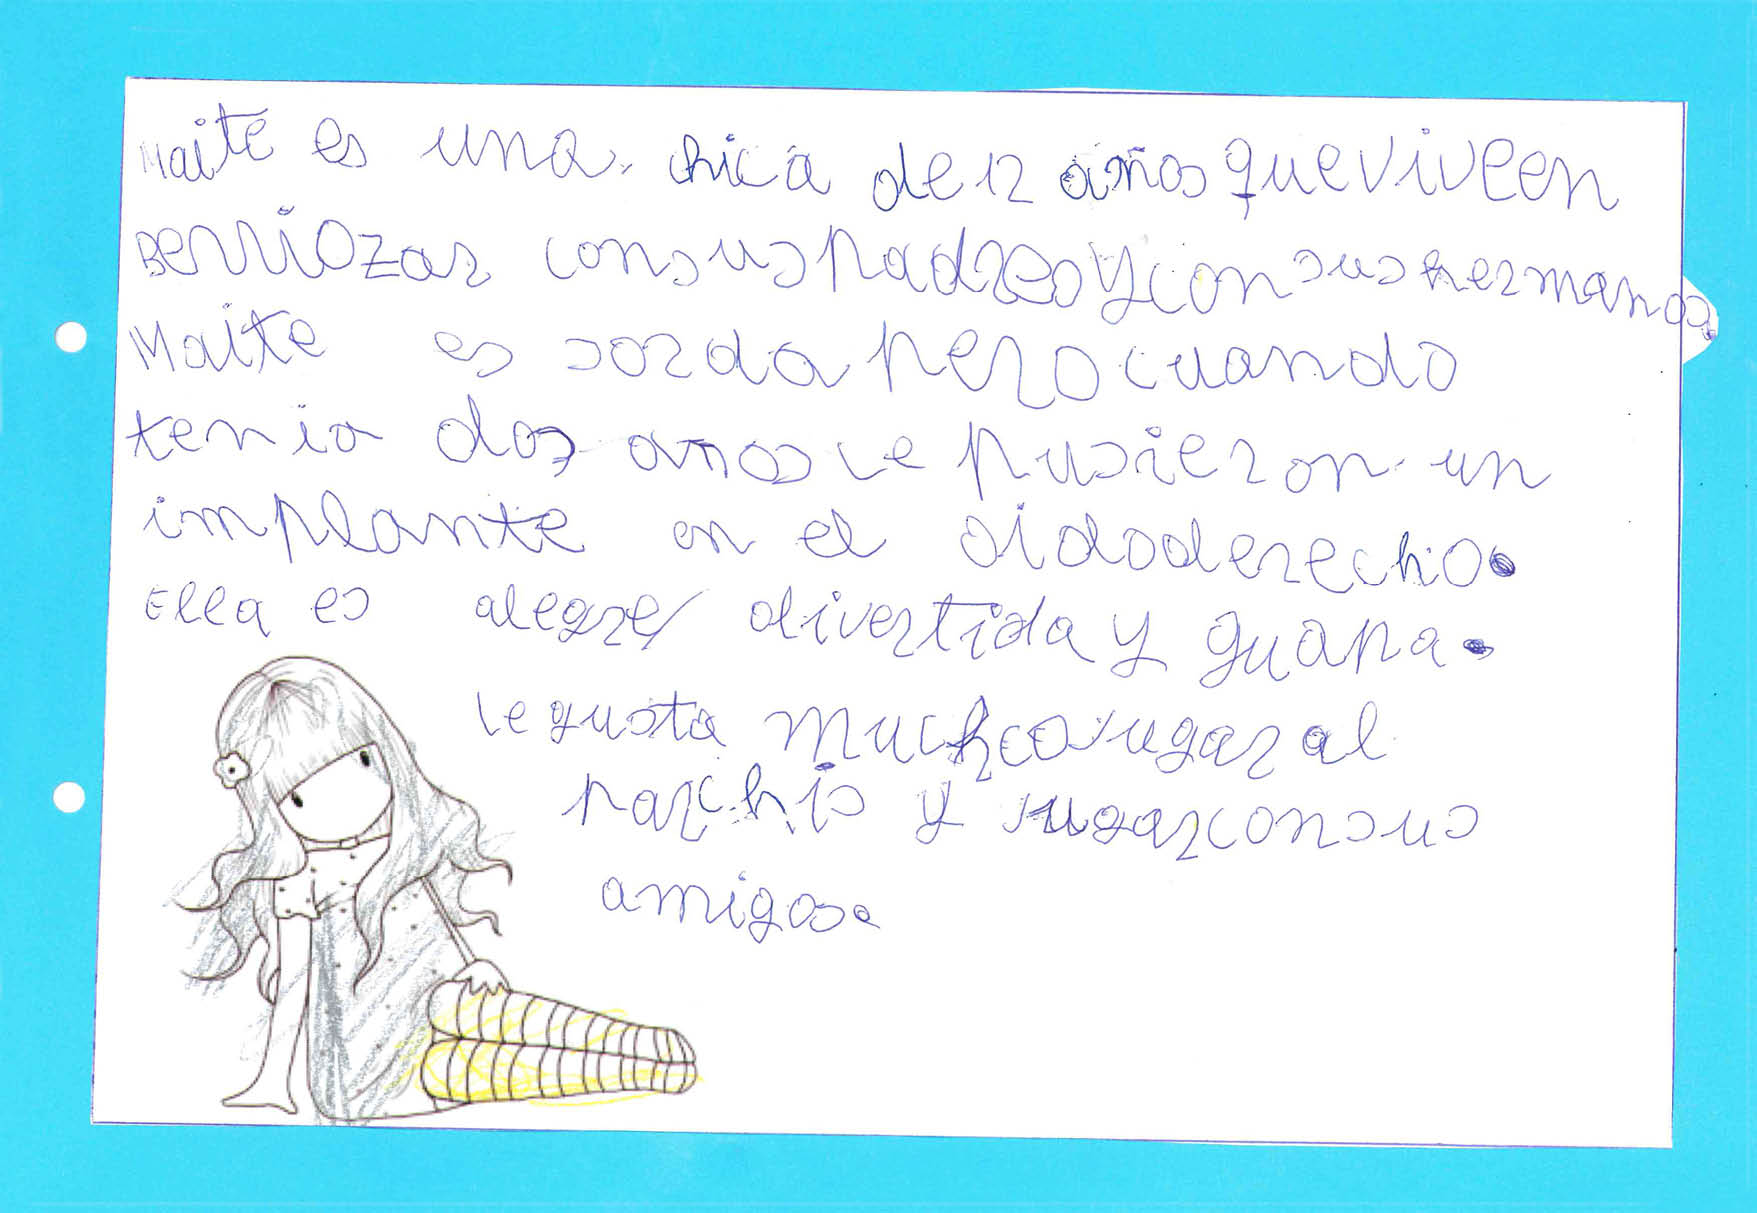 Maite es una chica de 12 años que vive en
Berriozar con sus padres y con sus hermanos.
Maite es sorda pero cuando
tenia dos años le pusieron un
implante en el oido derecho.
Ella es alegre, divertida y guapa.
le gusta mucho jugar al
parchis y jugar con sus
amigos.